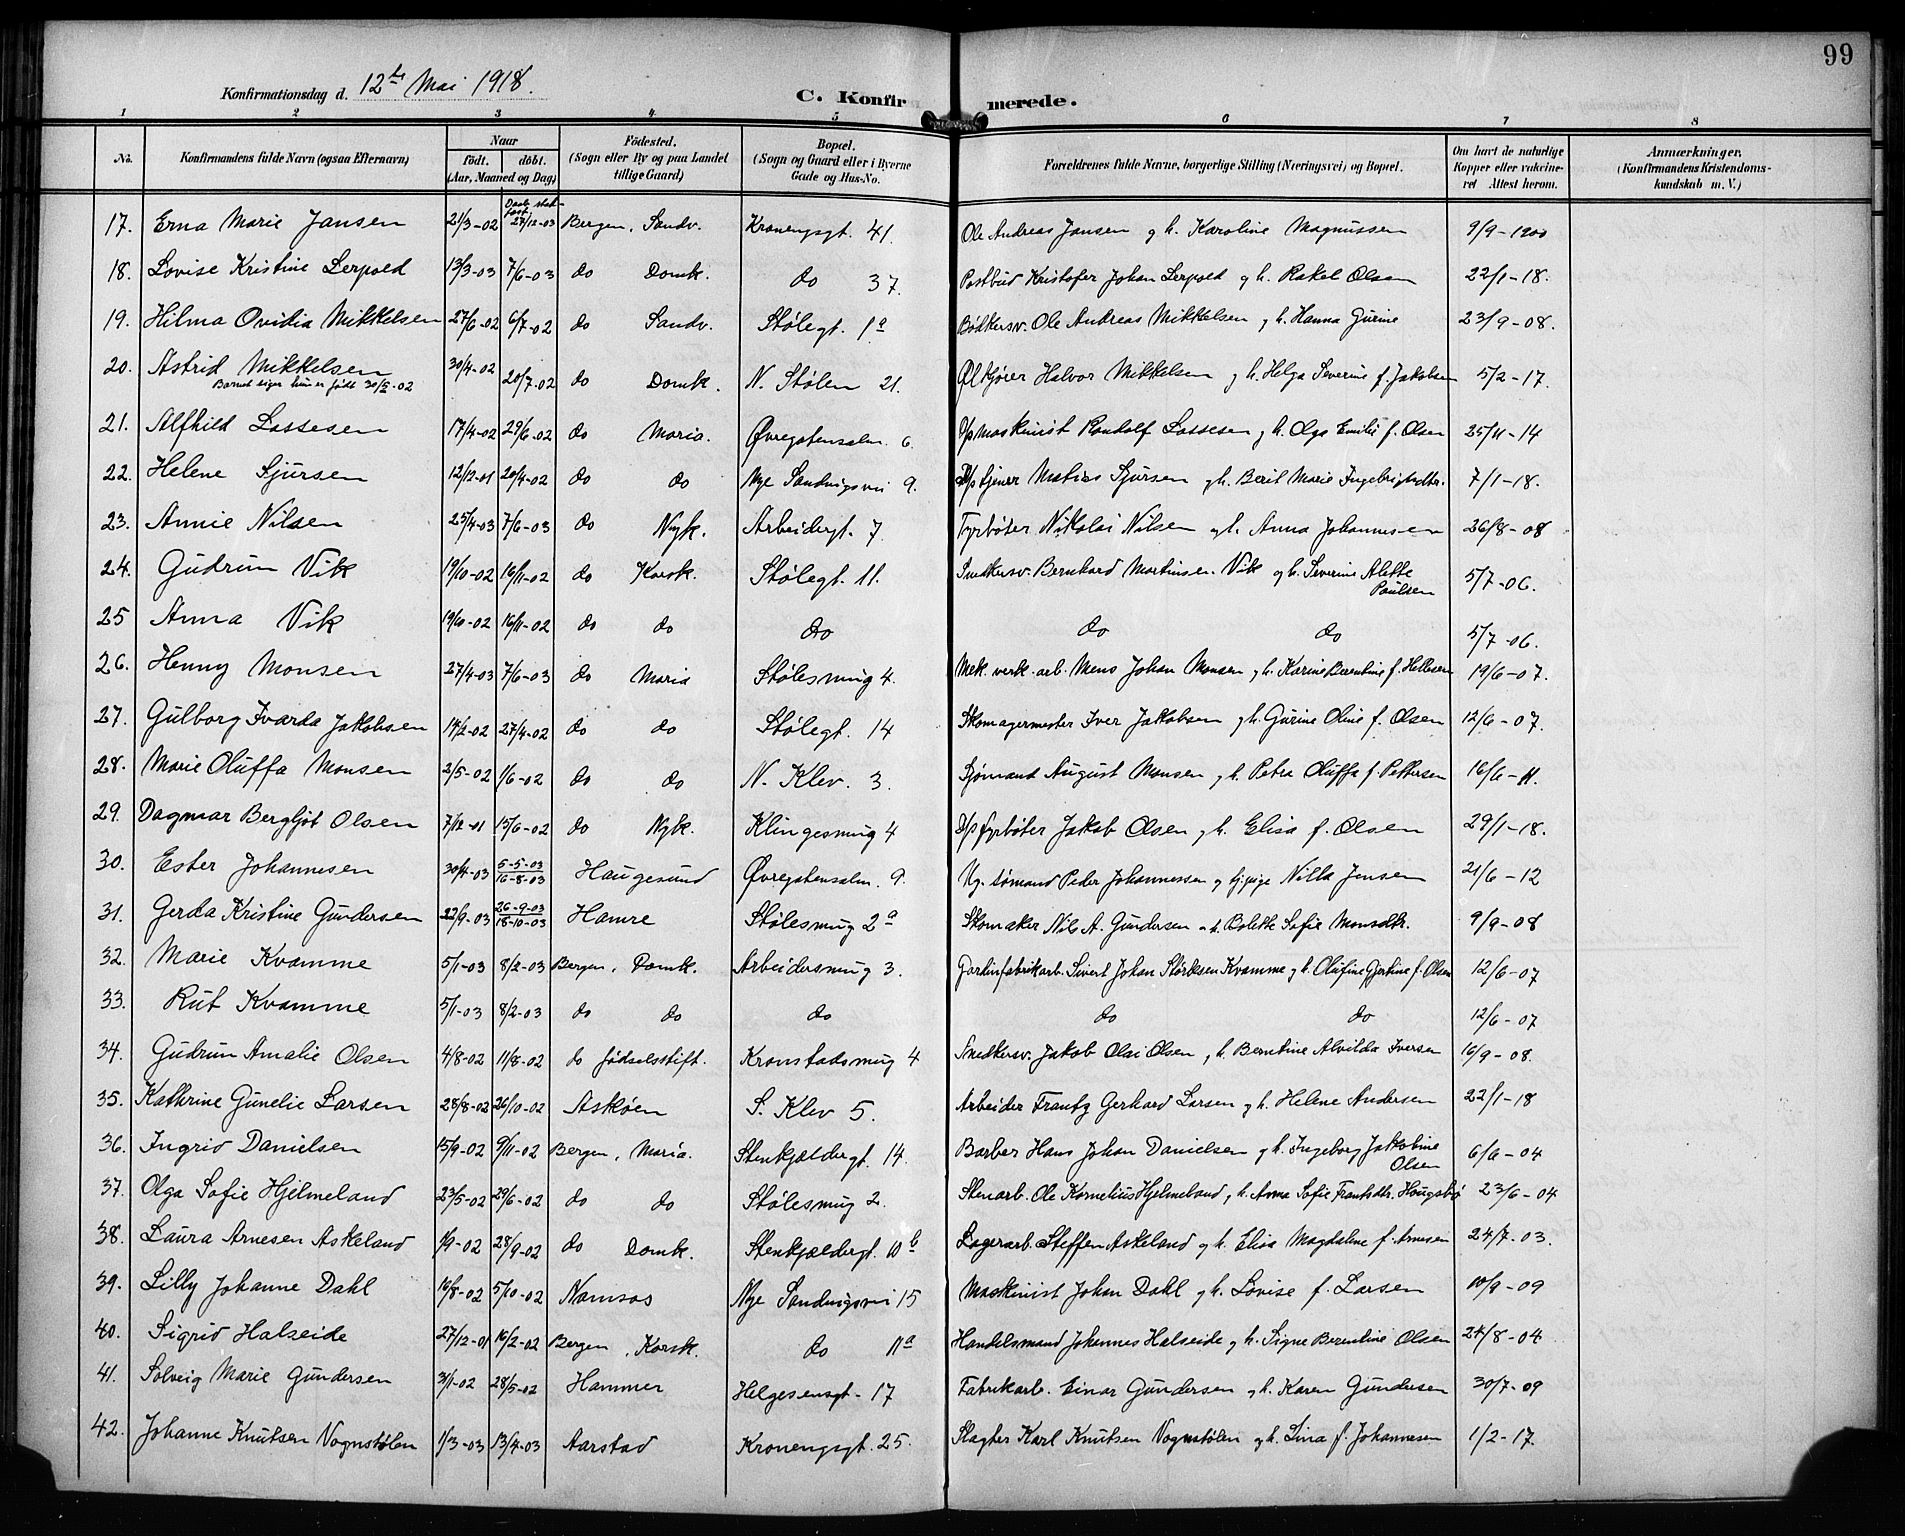 99
Konfirmationsdag d. 12te Mai 1918.
C. Konfirmerede.
1 2 3 4 5 6 7 8
No.
Konfirmandens fulde Navn (ogsaa Efternavn)
Naar
födt. döbt.
(Aar, Maaned og Dag)
Födested.
(Sogn eller By og paa Landet
tillige Gaard)
Bopæl.
(Sogn og Gaard eller i Byerne
Gade og Hus-No.
Forældrenes fulde Navne, borgerlige Stilling (Næringsvei) og Bopæl.
Om havt de naturlige
Kopper eller vakcine-
ret Attest herom.
Anmærkninger.
(Konfirmandens Kristendoms-
kundskab m. V.)
17. Erna Marie Jansen 21/3-02 28/12-03 Bergen, Sandv. Kronengsgt. 41. Ole Andreas Jansen g h. Karoline Magnussen 9/9-1900
18. Lovise Kristine Lerpold 13/3-03 7/6-03 do Domk. do 37. Postbud Kristofer Johan Lerpold g h. Rakel Olsen 22/1-18.
19. Hilma Ovidia Mikkelsen 27/6-02 6/7-02 do Sandv. Stølegt. 1a Bødkersv. Ole Andreas Mikkelsen g h. Hanna Gurine 23/9-08.
20. Astrid Mikkelsen 30/4-02 20/7-02 do Domk. N. Stølen 21. Ølkjører Halvor Mikkelsen g h. Helga Severine f. Jakobsen 5/2-17.
Barnet siger hun er født 30/5-02
21. Alfhild Lassesen 17/4-02 29/6-02 do Maria. Øvregatensalm. 6. D/p maskinist Randolf Lassesen g h. Olga Emilie f. Olsen 25/11-14
22. Helene Sjursen 12/12-01 20/4-02 do do Nye Sandvigsvei 9. D/p tjener Matias Sjursen g h. Berit Marie Ingebrigtsdtr. 7/1-18.
23. Annie Nilsen 25/4-03 7/6-03 do Nyk. Arbeidergt. 7 Fyrbøter Nikolai Nilsen g h. Anna Johannesen 26/8-08
24. Gudrun Vik 19/10-02 16/11-02 do Korsk. Stølegt. 11. Snedkersv. Bernhard Martinsen Vik g h. Severine Alette Paulsen 5/7-06.
25 Anna Vik 19/10-02 16/11-02 do do do do do 5/7-06.
26. Henny Monsen 27/4-03 7/6-03 do Maria Stølesmug 4. Mek. verk. arb. Mons Johan Monsen g h. Karine Berentine f. Hellesen 19/6-07.
27. Gulborg Ivarda Jakobsen 14/2-02 27/4-02 do do Stølegt. 14 Skomagermester Iver Jakobsen g h. Gurine Oline f. Olsen 12/6-07.
28. Marie Oluffa Monsen 2/5-02 1/6-02 do do N. Klev. 3. Sjømand August Monsen g h. Petra Oluffa f. Pettersen 16/6-11.
29. Dagmar Bergljot Olsen 7/12-01 15/6-02 do Nyk. Klingesmug 4 D/p fyrbøter Jakob Olsen g h. Elisa f. Olsen 29/1-18.
30. Ester Johannesen 30/4-03 5-5-03 16-8-03 Haugesund Øvregatensalm. 9. Ug. sømand Peder Johannessen g tj.pige Nilla Jensen 21/6-12
31. Gerda Kristine Gundersen 22/9-03 26-9-03 18-10-03 Hamre Stølesmug 2a Skomaker Nils A. Gundersen g h. Bolette Sofie Monsdtr. 9/9-08
32. Marie Kvamme 5/1-03 8/2-03 Bergen, Domk. Arbeidersmug 3. Gardinfabrikarb. Sivert Johan Størksen Kvamme g h. Olufine Gjertine f. Olsen 12/6-07
33. Rut Kvamme 5/1-03 8/2-03 do do do do do 12/6-07
34. Gudrun Amalie Olsen 4/8-02 11/8-02 do fødselsstift. Kronstadsmug 4 Snedkersv. Jakob Olai Olsen g h. Berntine Alvilda Iversen 16/9-08.
35. Kathrine Gunelie Larsen 28/8-02 26/10-02 Askøen S. Klev 5. Arbeider Frantz Gerhard Larsen g h. Helene Andersen 22/1-18
36. Ingrid Danielsen 15/9-02 9/11-02 Bergen, Maria. Stenkjældergt. 14. Barber Hans Johan Danielsen g h. Ingeborg Jakobine Olsen 6/6-04
37. Olga Sofie Hjelmeland 23/5-02 29/6-02 do do Stølesmug 2. Stenarb. Ole Kornelius Hjelmeland g h. Anna Sofie Frantsdtr. Haugsbø 23/6-04
38. Laura Arnesen Askeland 1/9-02 28/9-02 do Domk. Stenkjældergt. 10b Lagerarb. Steffen Askeland g h. Elisa Magdalene f. Arnesen 24/7-03.
39. Lilly Johanne Dahl 16/8-02 5/10-02 Namsos Nye Sandvigsvei 15 Maskinist Johan Dahl g h. Lovise f. Larsen 10/9-09
40. Sigrid Halseide 27/12-01 16/2-02 Bergen, Korsk. do 11a Handelsmand Johannes Halseide g h. Signe Berentine Olsen 24/8-04
41. Solveig Marie Gundersen 3/1-02 28/5-02 Hammer Helgesensgt. 17 Fabrikarb. Einar Gundersen g h. Karen Gundersen 30/7-09
42. Johanne Knutsen Vognstølen 1/3-03 13/4-03 Aarstad Kronengsgt. 25. Slagter Karl Knutsen Vognstølen g h. Lina f. Johannesen 1/2-17.